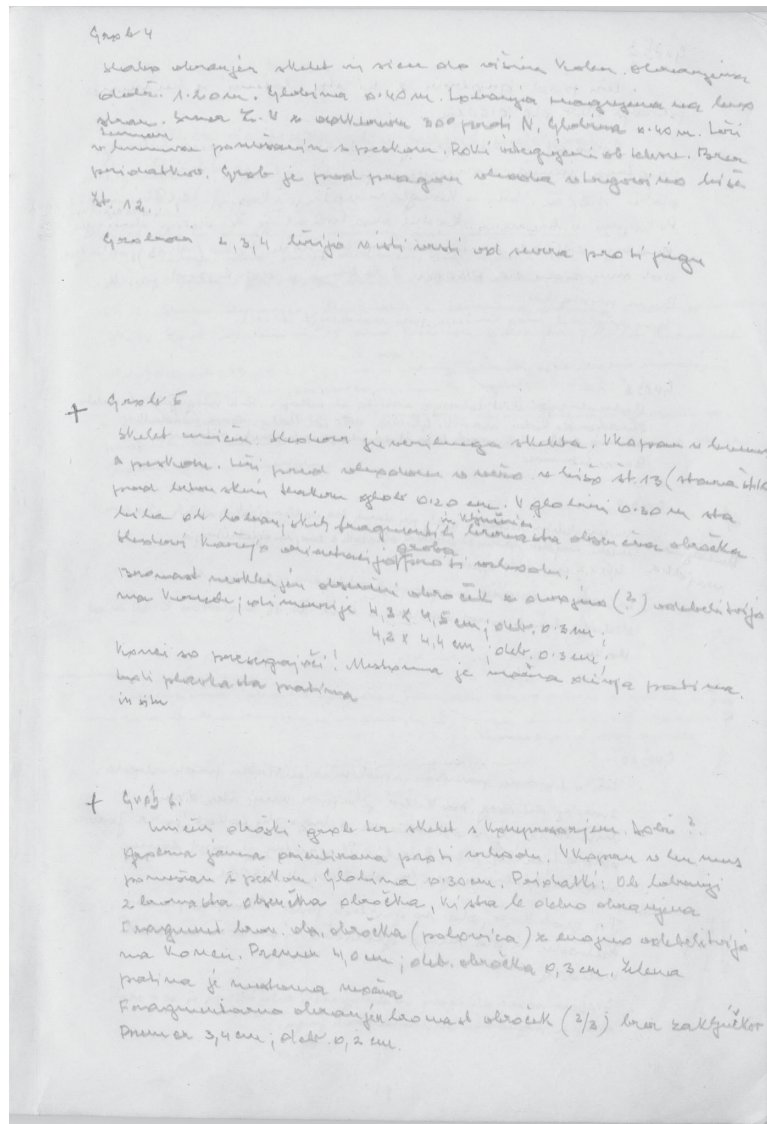 Grob 4
Slabo ohranjen skelet in sicer do višine kolen. Ohranjena
dolž. 1.20 m. Globina 0.40 m. Lobanja nagnjena na levo
stran. Smer Z. V z odklonom 30° proti N. Globina 0.40 m. Leži
v humusu pomešanim s peskom. Roki iztegnjeni ob telesu. Brez
pridatkov. Grob je pred pragom vhoda v trgovino hiše
št. 12.
Grobovi 2, 3, 4 ležijo v isti vrsti od severa proti jugu
+ Grob 5
Skelet uničen. Sledovi skeleta. Vkopan v humus
s peskom. Leži pred vhodom v vežo v hišo št. 13 (stara
pred glob 0.20 cm. V globini 0.30 m sta
bila ob lobanjskih fragmentih bronasta obsenčna obročka
Sledovi kažejo orientacijo groba proti vzhodu.
Bronast obsenčni obroček z dvojno (?) odebelitvijo
na koncu; dimenzije 4,3 x 4,5 cm; deb. 0.3 cm;
4,2 x 4,4 cm; deb. 0.3 cm;
Konci so presegajoči! Mestoma je močna patina.
patina
in situ
+ Grob 6.
Uničen otroški grob ter skelet s kompresorjem. ?
jama orientirana proti vzhodu. Vkopan v humus
pomešan s peskom. Globina 0.30 cm. Pridatki: Ob lobanji
2 bronasta obsenčna obročka, ki sta le delno ohranjena
Fragment bron. obročka (polovica) z enojno odebelitvijo
na koncu. Premer 4,0 cm; deb. obročka 0,3 cm. Zelena
patina je mestoma močna
Fragmentarno ohranjen bronast obroček (2/3) brez zaključkov
Premer 3,4 cm; deb. 0,2 cm.